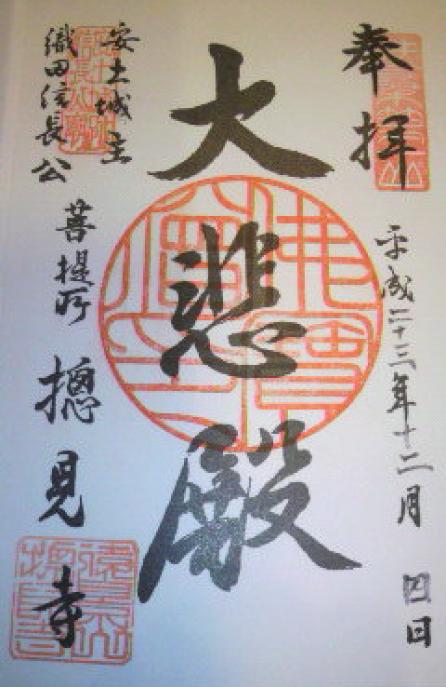 奉拝
平成二十三年十二月四日
大悲殿
安土城主
織田信長公
菩提所 摠見寺